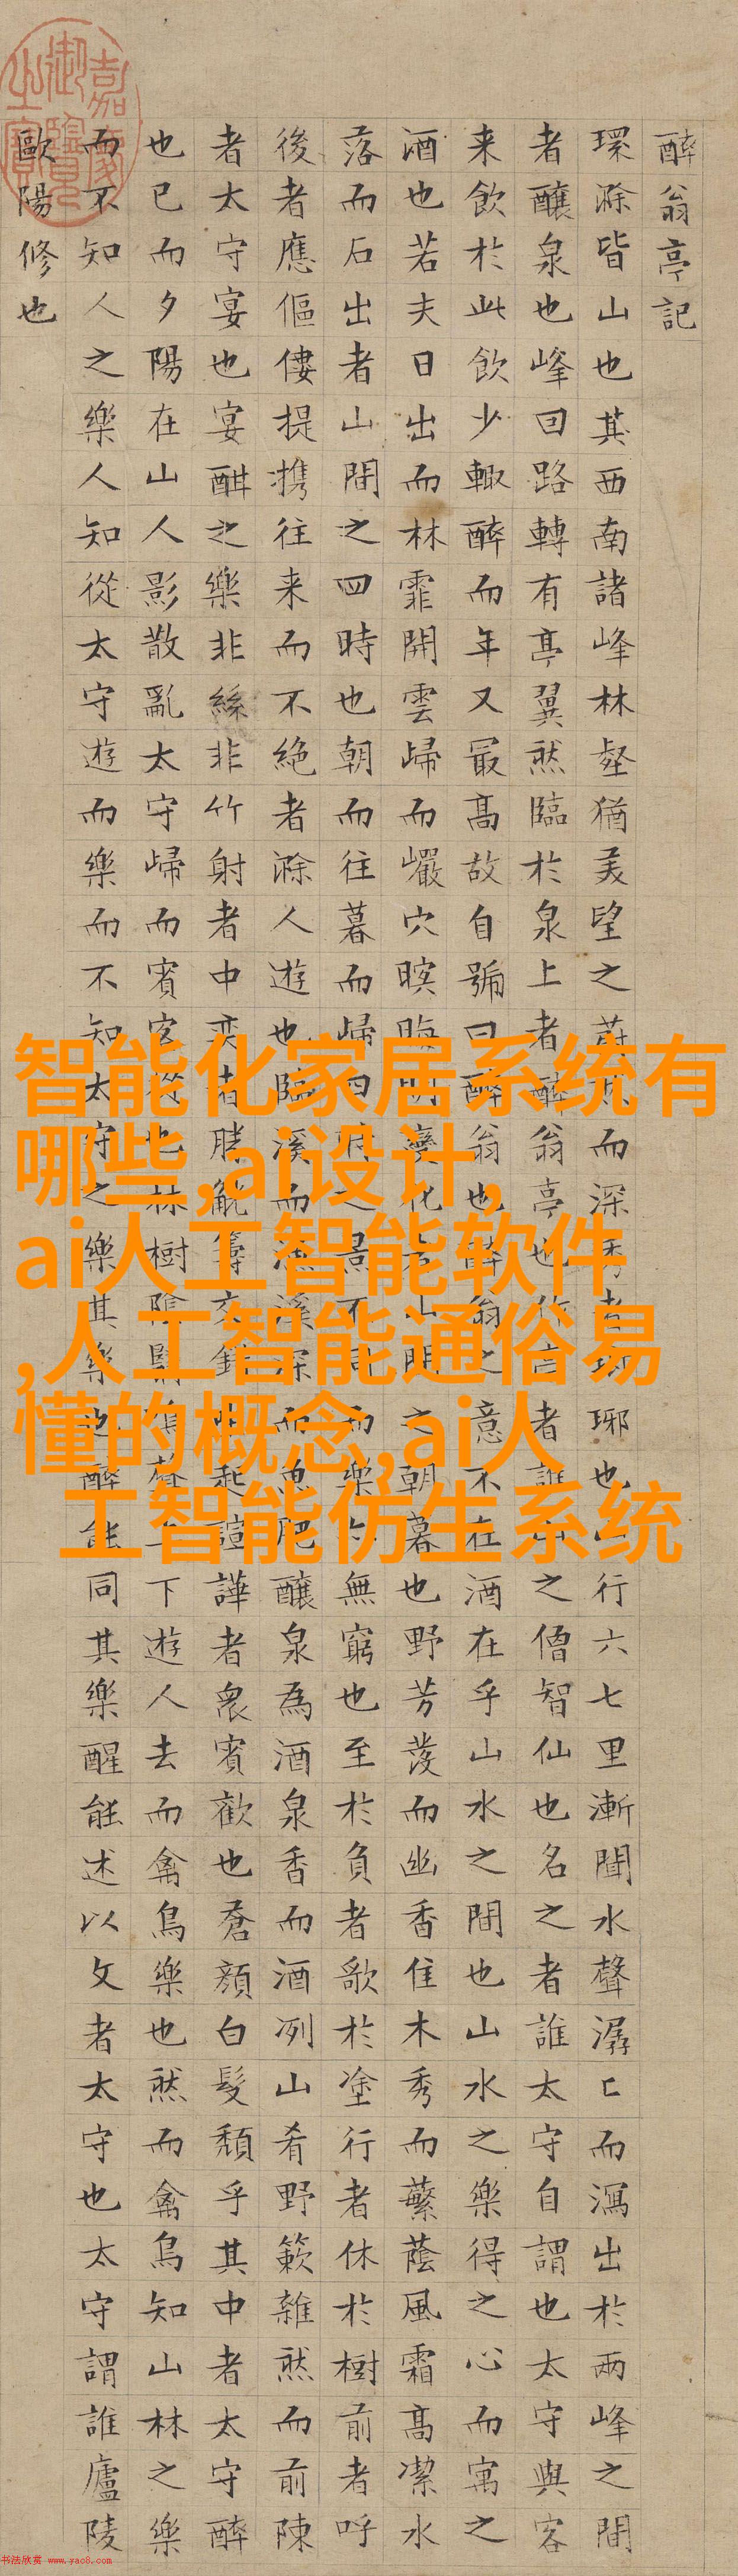 醉翁亭記
環滁皆山也其西南諸峰林壑猶美望之而深琊也行六七里漸聞水聲潺ヒ而瀉出於兩峰之間
者釀泉也峰回路轉有亭翼然臨於泉上者醉翁亭也者誰之僧智仙也名之者誰太守自謂也太守與客
来飲於此飲少輒醉而年又最高故自號曰醉翁也醉翁之意不在酒在乎山水之間也山水之樂得之心而寓之
酒也若夫日出而林霏開雲歸而巖穴暝晦明變化山間之朝暮也野芳發而幽香佳木秀而繁蔭風霜高潔水
落而石出者山間之四時也朝而往暮而歸四之景不同而樂無窮也至於負者歌於塗行者休於樹前者呼
後者應傴僂提携往来而不絶者滁人遊也臨溪而漁溪深而魚肥釀泉為酒泉香而酒冽山肴野蔌雜然而前陳
者太守宴也宴酣之樂非絲非竹射者中奕者勝觥籌交錯起諠譁者眾賓歡也蒼顏白髮頹乎其中者太守醉
也已而夕陽在山人影散亂太守歸而賓客從也林樹陰翳鳴聲上下遊人去而禽鳥樂也然而禽鳥知山林之樂
而不知人之樂人知從太守遊而樂而不知太守之樂其樂也醉能同其樂醒能述以文者太守也太守謂誰廬陵
歐陽修也
嘉慶御覽之寶
智能化家居系统有
哪些,ai设计,
ai人工智能软件
,人工智能通俗易
懂的概念,ai人
工智能仿生系统
书法欣赏 www.yac8.com